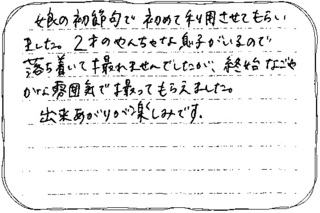 娘の初節句で初めて利用させてもらい
ました。2才のやんちゃな息子がいるので
落ち着いて撮れませんでしたが、終始なごや
かな雰囲気で撮ってもらえました。
出来あがりが楽しみです。